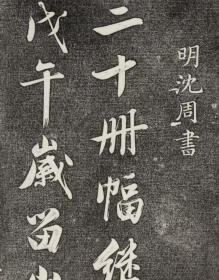 明沈周書
二十冊幅継
戊午歲留